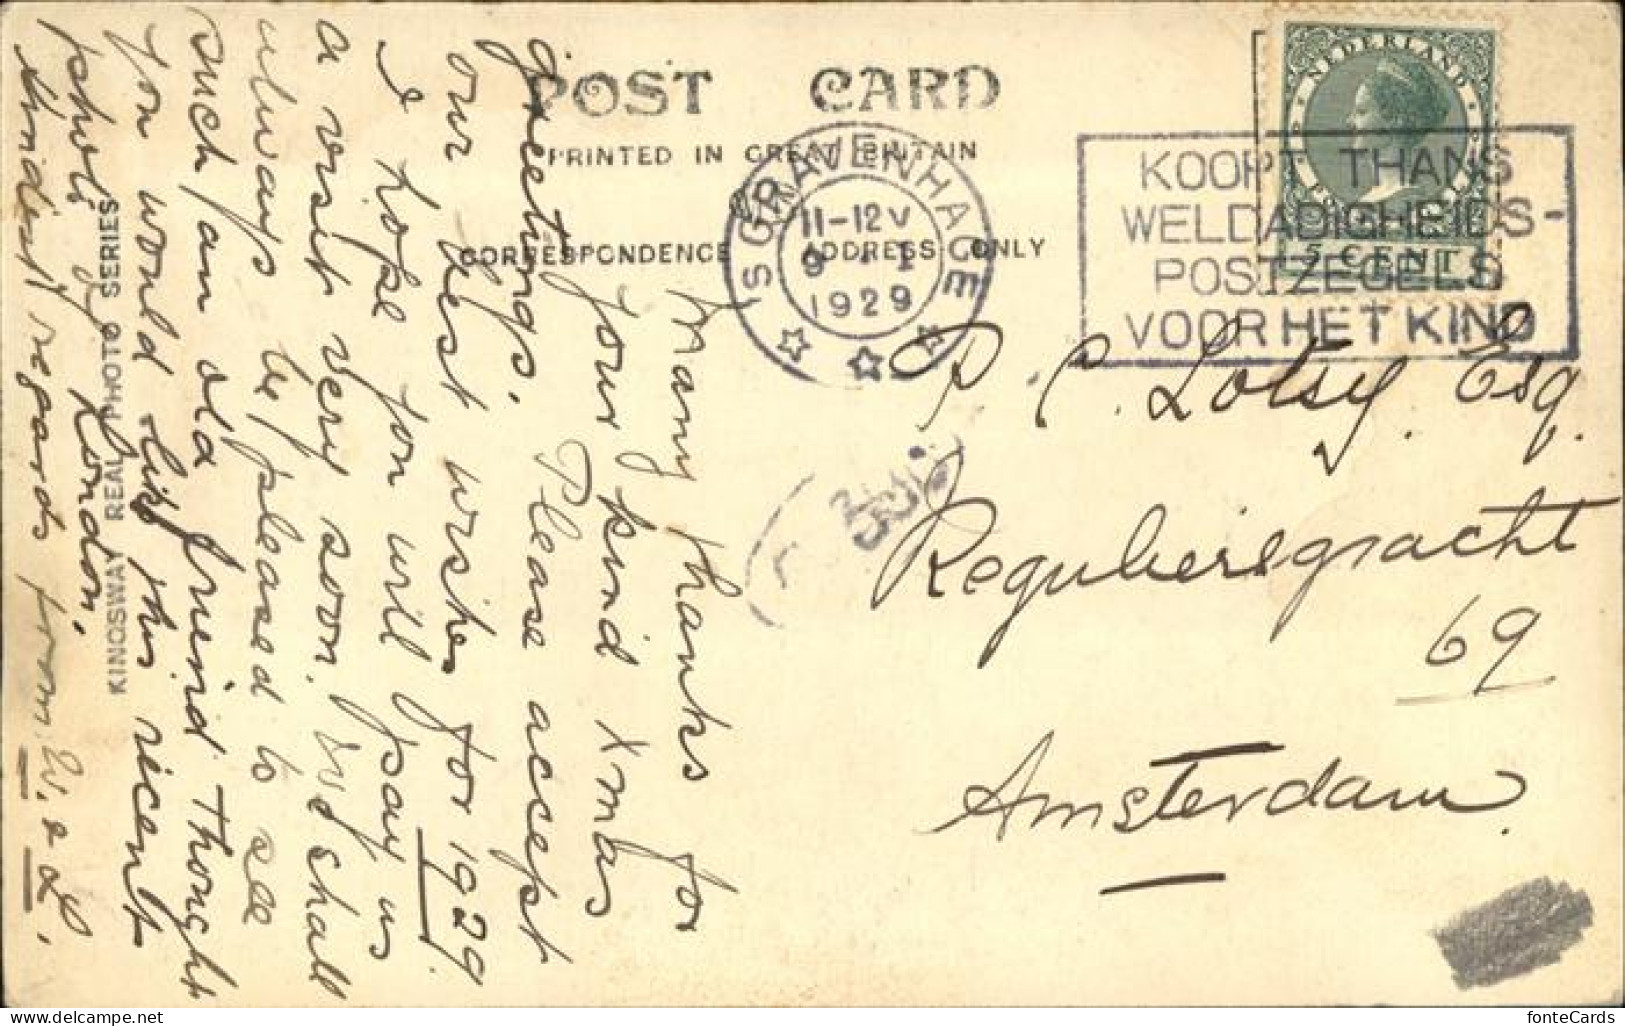 POST CARD
PRINTED IN GREAT BRITAIN
CORRESPONDENCE ADDRESS ONLY
KINGSWAY REAL PHOTO SERIES
NEDERLAND
5 CENT
'S GRAVENHAGE
11-12V
9 I
1929
KOOPT THANS
WELDADIGHEIDS-
POSTZEGELS
VOOR HET KIND
P. C. Lotsy. Esq.
Reguliersgracht
69
Amsterdam.
Many thanks for
your kind Xmas
greetings. Please accept
our best wishes for 1929.
I hope you will pay us
a visit very soon. We shall
always be pleased to see
such an old friend. Thought
you would like this recent
photo of London.
Kindest regards from W. & L.
fonteCards